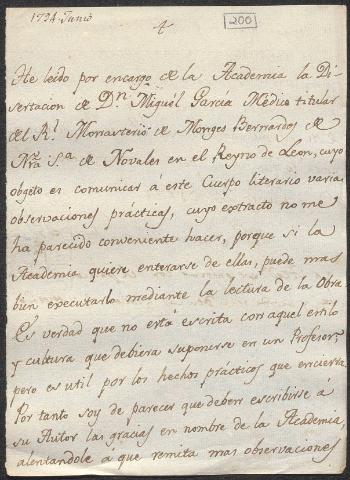 1794 Junio
4
200
He leido por encargo de la Academia la Di-
sertacion de Dn. Miguèl Garcia Medico titular
del Rl. Monasterio de Monges Bernardos de
Nra. Sa. de Novales en el Reyno de Leon, cuyo
obgeto es comunicar á este Cuerpo literario varias
observaciones prácticas, cuyo extracto no me
ha parecido conveniente hacer, porque si la
Academia quiere enterarse de ellas, puede mas
bien executarlo mediante la lectura de la Obra
Es verdad que no está escrita con aquel estilo
y cultura que debiera suponerse en un Profesor,
pero es util por los hechos prácticos que encierra.
Por tanto soy de parecer que deben escribirse á
su Autor las gracias en nombre de la Academia,
alentandole á que remita mas observaciones